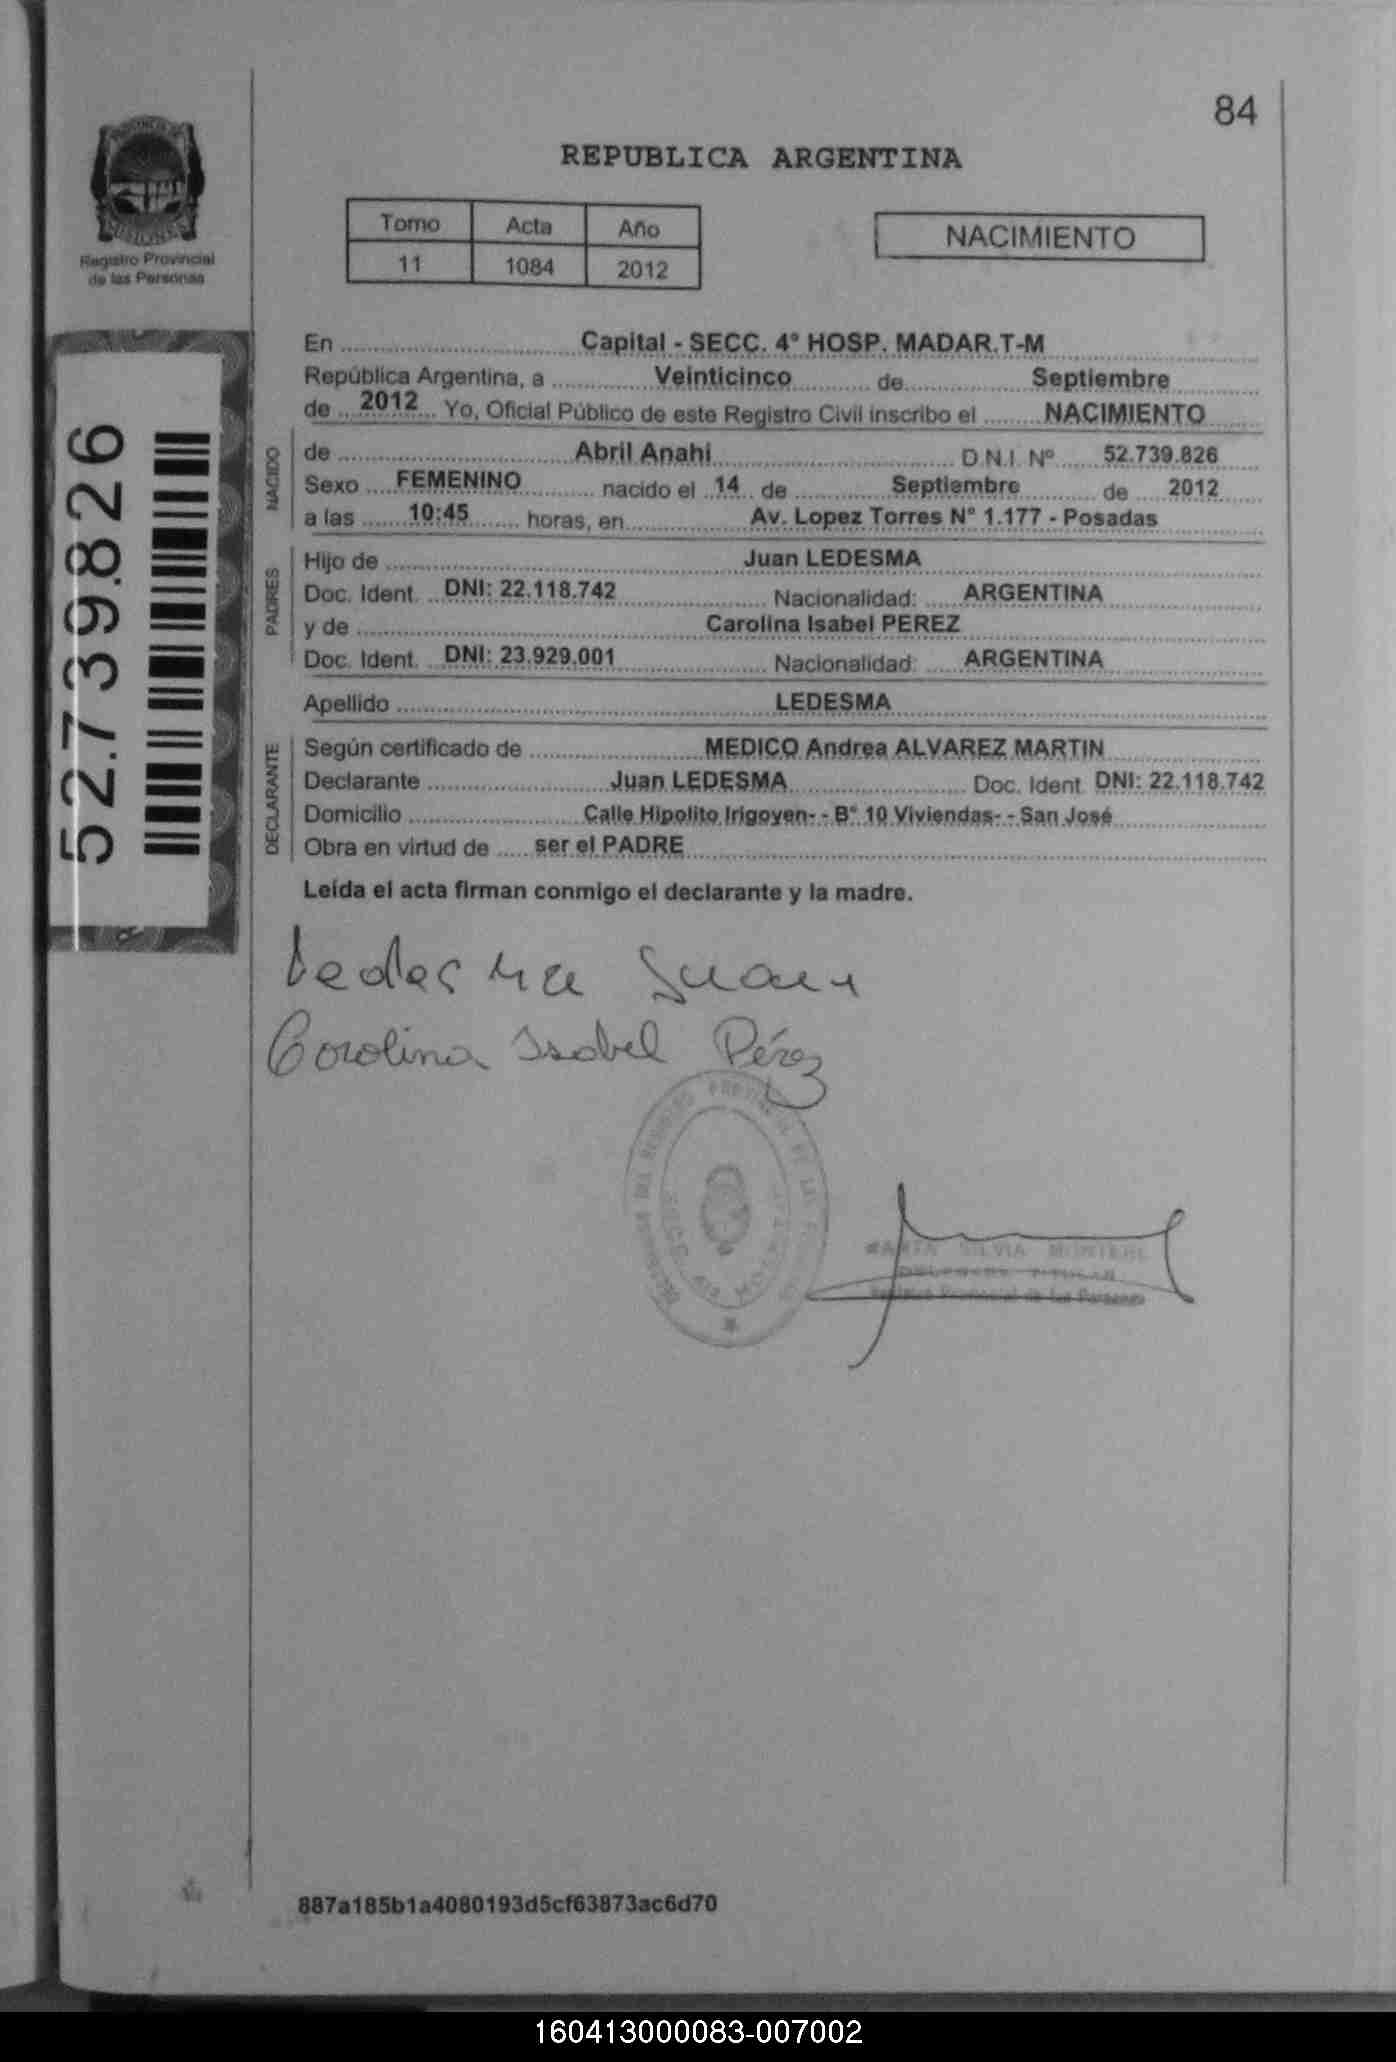 84
REPUBLICA ARGENTINA
Tomo Acta Año
11 1084 2012
NACIMIENTO
Registro Provincial
de las Personas
52.739.826
En Capital - SECC. 4° HOSP. MADAR.T-M
República Argentina, a Veinticinco de Septiembre
de 2012 Yo, Oficial Público de este Registro Civil inscribo el NACIMIENTO
NACIDO
de Abril Anahi D.N.I. Nº 52.739.826
Sexo FEMENINO nacido el 14 de Septiembre de 2012
a las 10:45 horas, en Av. Lopez Torres N° 1.177 - Posadas
PADRES
Hijo de Juan LEDESMA
Doc. Ident. DNI: 22.118.742 Nacionalidad: ARGENTINA
y de Carolina Isabel PEREZ
Doc. Ident. DNI: 23.929.001 Nacionalidad: ARGENTINA
Apellido LEDESMA
DECLARANTE
Según certificado de MEDICO Andrea ALVAREZ MARTIN
Declarante Juan LEDESMA Doc. Ident. DNI: 22.118.742
Domicilio Calle Hipolito Irigoyen- - B° 10 Viviendas- - San José
Obra en virtud de ser el PADRE
Leída el acta firman conmigo el declarante y la madre.
Ledesma Juan
Carolina Isabel Pérez
SILVIA
TITULAR
Registro Provincial de Las Personas
887a185b1a4080193d5cf63873ac6d70
160413000083-007002